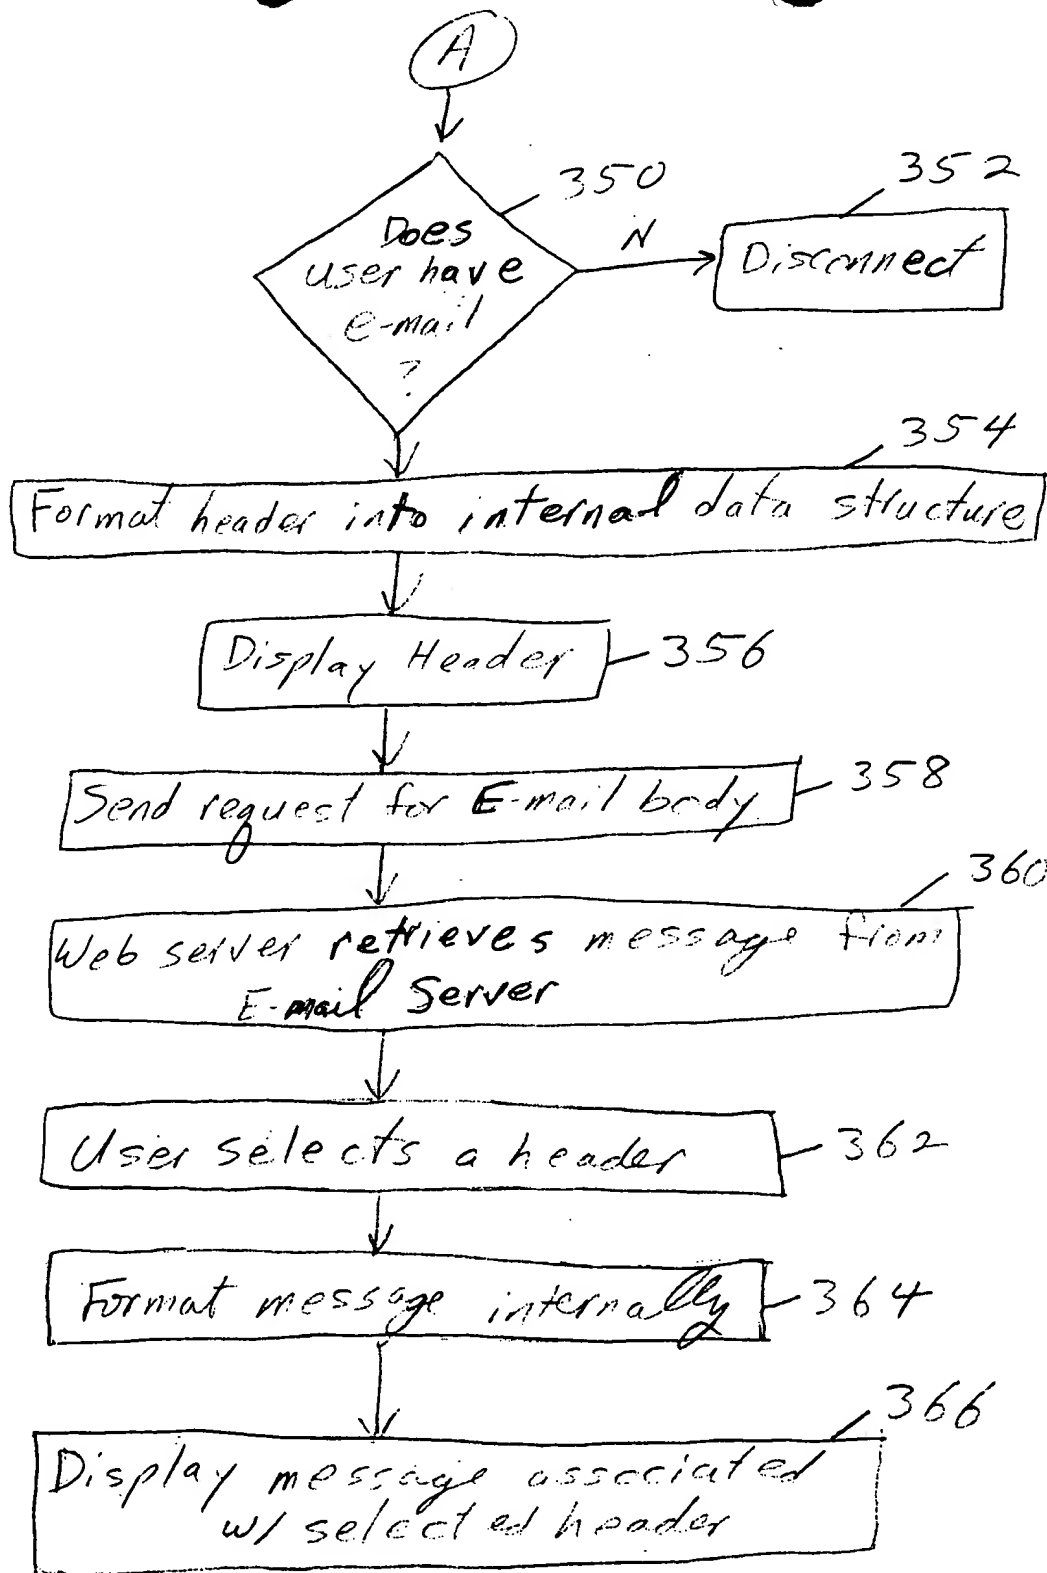 A
350
352
Does
user have
e-mail
?
N
Disconnect
354
Format header into internal data structure
Display Header
356
Send request for E-mail body
358
360
Web server retrieves message from
E-mail Server
User selects a header
362
Format message internally
364
366
Display message associated
w/ selected header